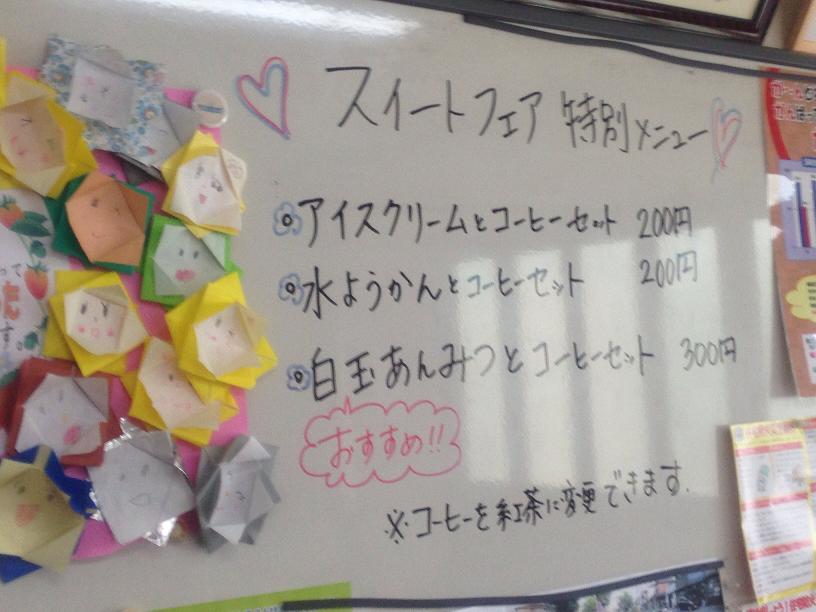 スイートフェア 特別メニュー
アイスクリームとコーヒーセット 200円
水ようかんとコーヒーセット 200円
白玉あんみつとコーヒーセット 300円
おすすめ!!
※コーヒーを紅茶に変更できます.